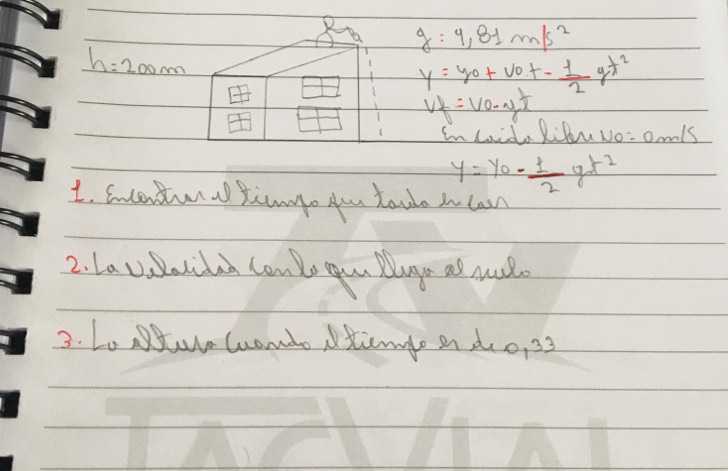 g: 9,81 m/s²
h=200m
y = yo + vot - 1/2 gt²
vf = vo - gt
En caida libre vo = 0 m/s
y = yo - 1/2 gt²
1. Encontrar el tiempo que tarda en caer
2. La velocidad con la que llega al suelo
3. La altura cuando el tiempo es de 0,33
TACVIAL